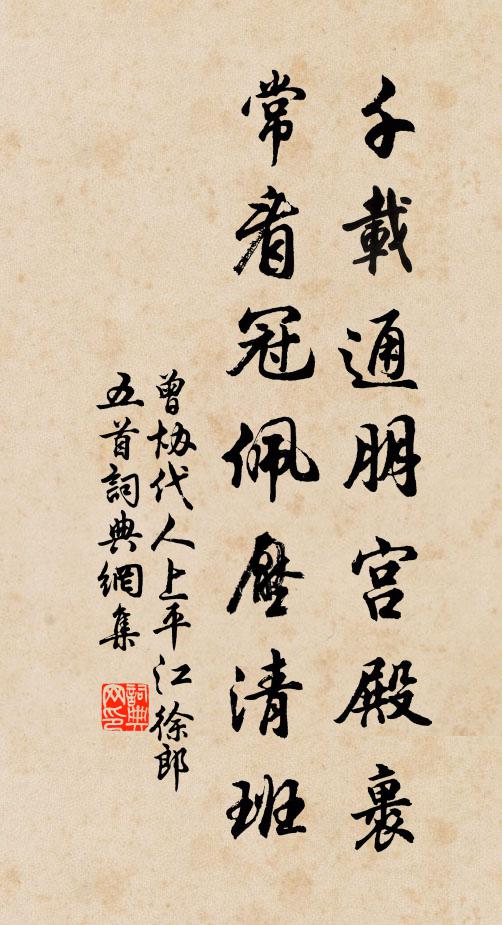 千載通明宮殿裏
常看冠佩壓清班
曾協代人上平江徐郎
五首詞典網集
詞典
网印